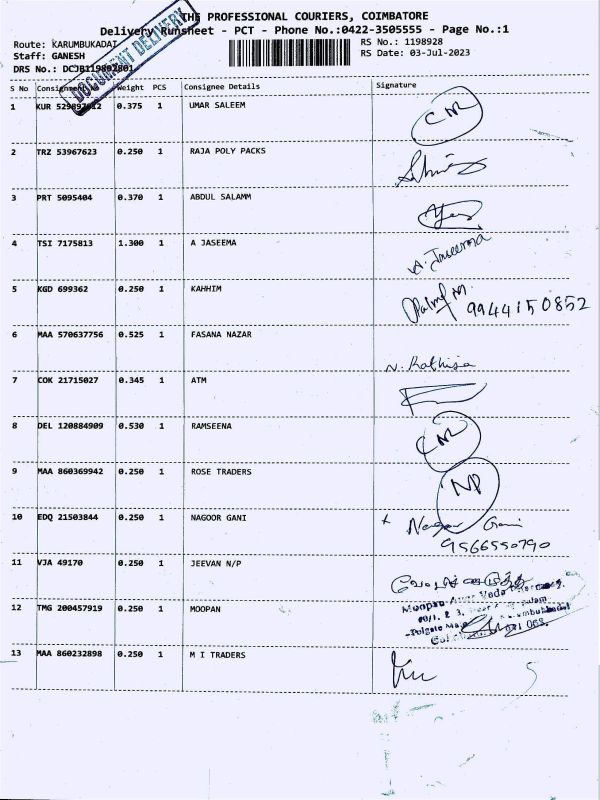 THE PROFESSIONAL COURIERS, COIMBATORE
Delivery Runsheet - PCT - Phone No.:0422-3505555 - Page No.:1
Route: KARUMBUKADAI RS No.: 1198928
Staff: GANESH RS Date: 03-Jul-2023
DRS No.:
DOCUMENT DELIVERY
S No Consignment Weight PCS Consignee Details Signature
1 KUR 0.375 1 UMAR SALEEM CNR
2 TRZ 53967623 0.250 1 RAJA POLY PACKS
3 PRT 5095404 0.370 1 ABDUL SALAMM
4 TSI 7175813 1.300 1 A JASEEMA A. Jaseema
5 KGD 699362 0.250 1 KAHHIM 9944150852
6 MAA 570637756 0.525 1 FASANA NAZAR N. Rathisa
7 COK 21715027 0.345 1 ATM
8 DEL 120884909 0.530 1 RAMSEENA CNR
9 MAA 860369942 0.250 1 ROSE TRADERS NP
10 EDQ 21503844 0.250 1 NAGOOR GANI Nagoor Gani
9566550790
11 VJA 49170 0.250 1 JEEVAN N/P
12 TMG 200457919 0.250 1 MOOPAN Moopan
13 MAA 860232898 0.250 1 M I TRADERS